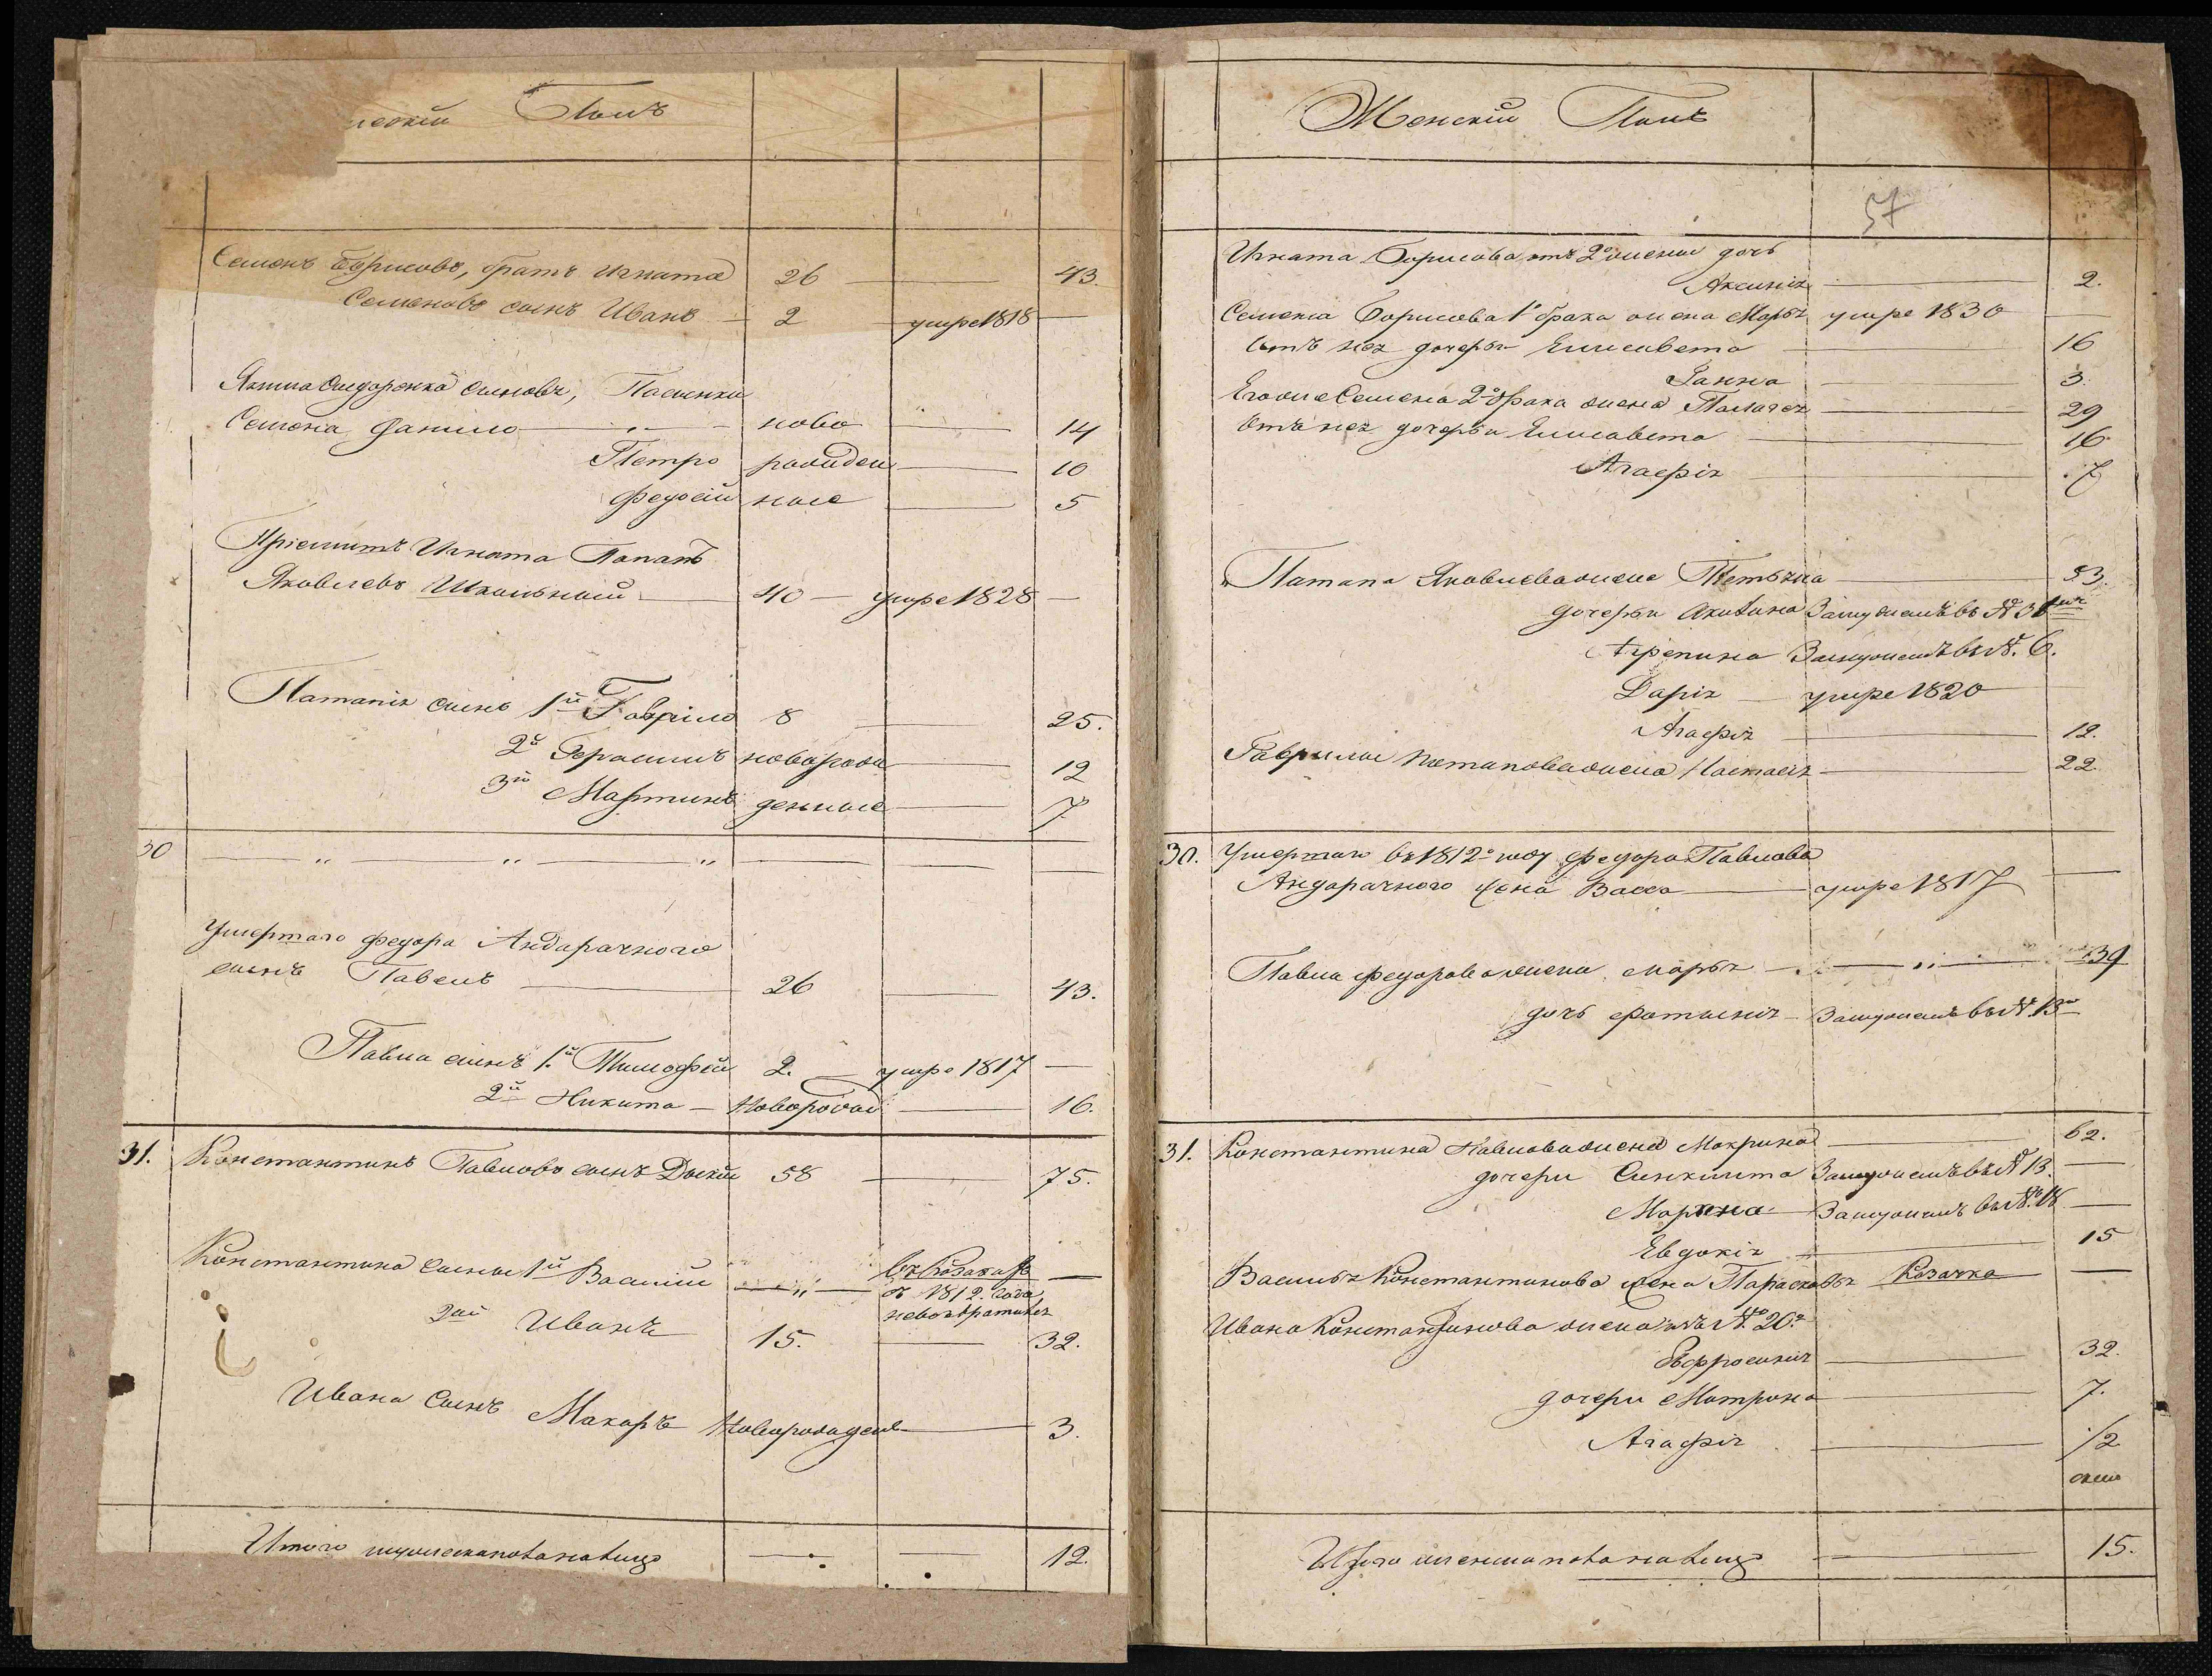 Полъ
Семенъ Борисовъ, братъ Игната 26 43.
Семеновъ сынъ Иванъ 2 умре 1818
сыновья, Пасынки
Семена Данило ново 14
Петро рожден 10
Федосій ные 5
Пріемышъ Игната Потапъ
Яковлевъ Школьный 40 умре 1828
Потапа сынъ 1й Гаврило 8 25.
2й Герасимъ новорож 12
3й Мартинъ денные 7
30
Умершаго Федора Андарачного
сынъ Павелъ 26 43.
Павла сынъ 1й Тимофей 2. умре 1817
2й Никита Новорожд 16.
31. Константинъ Павловъ сынъ 58 75.
Константина сыны 1й Василій въ козакахъ
съ 1812. года
невозвратился
2й Иванъ 15. 32.
Ивана Сынъ Макаръ Новорожден 3.
Итого мужеска пола на лицо 12.
Женский Полъ
57
Игната Борисова отъ 2й жены дочь
Аксинія 2.
Семена Борисова 1го брака жена Марья умре 1830
Отъ нея дочерьи Елисавета 16
Ганна 3.
Его же Семена 2го брака жена Палагея 29
Отъ нея дочерьи Елисавета 16
Агафія 7
Потапа Яковлева жена 53.
дочерьи Акилина Замужемъ въ №
Агрепина Замужемъ въ №. 6.
Дарія умре 1820
Агафія 12.
Гаврилы Потапова жена Настасія 22.
30. Умершаго въ 1812го году Федора Павлова
Андарачного жена Васса умре 1817
Павла Федорова жена Марья 39
дочь Фотинія Замужемъ въ № 13
31. Константина Павлова жена Макрина 62.
дочери Замужемъ въ № 13.
Марина Замужемъ въ №. 18
Евдокія 15
Василья Константинова жена Парасковья Козачка
Ивана Константинова жена изъ №. 20го
Ефросинія 32.
дочери Матрона 7.
Агафія 1/2
Итого женска пола на лицо 15.